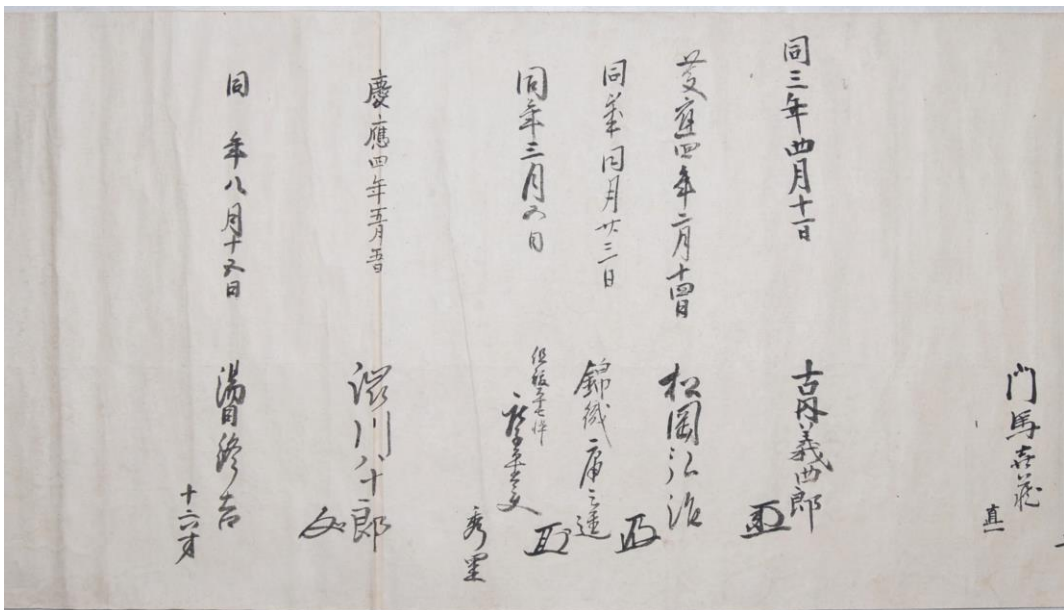 門馬喜蔵
直一
同三年四月十一日
古内義四郎
慶應四年二月十四日
松岡弘治
同年同月廿三日
錦織庸之進
同年三月五日
秀里
慶應四年五月五日
渋川八十郎
同年八月十五日
湯目修吉
十六才